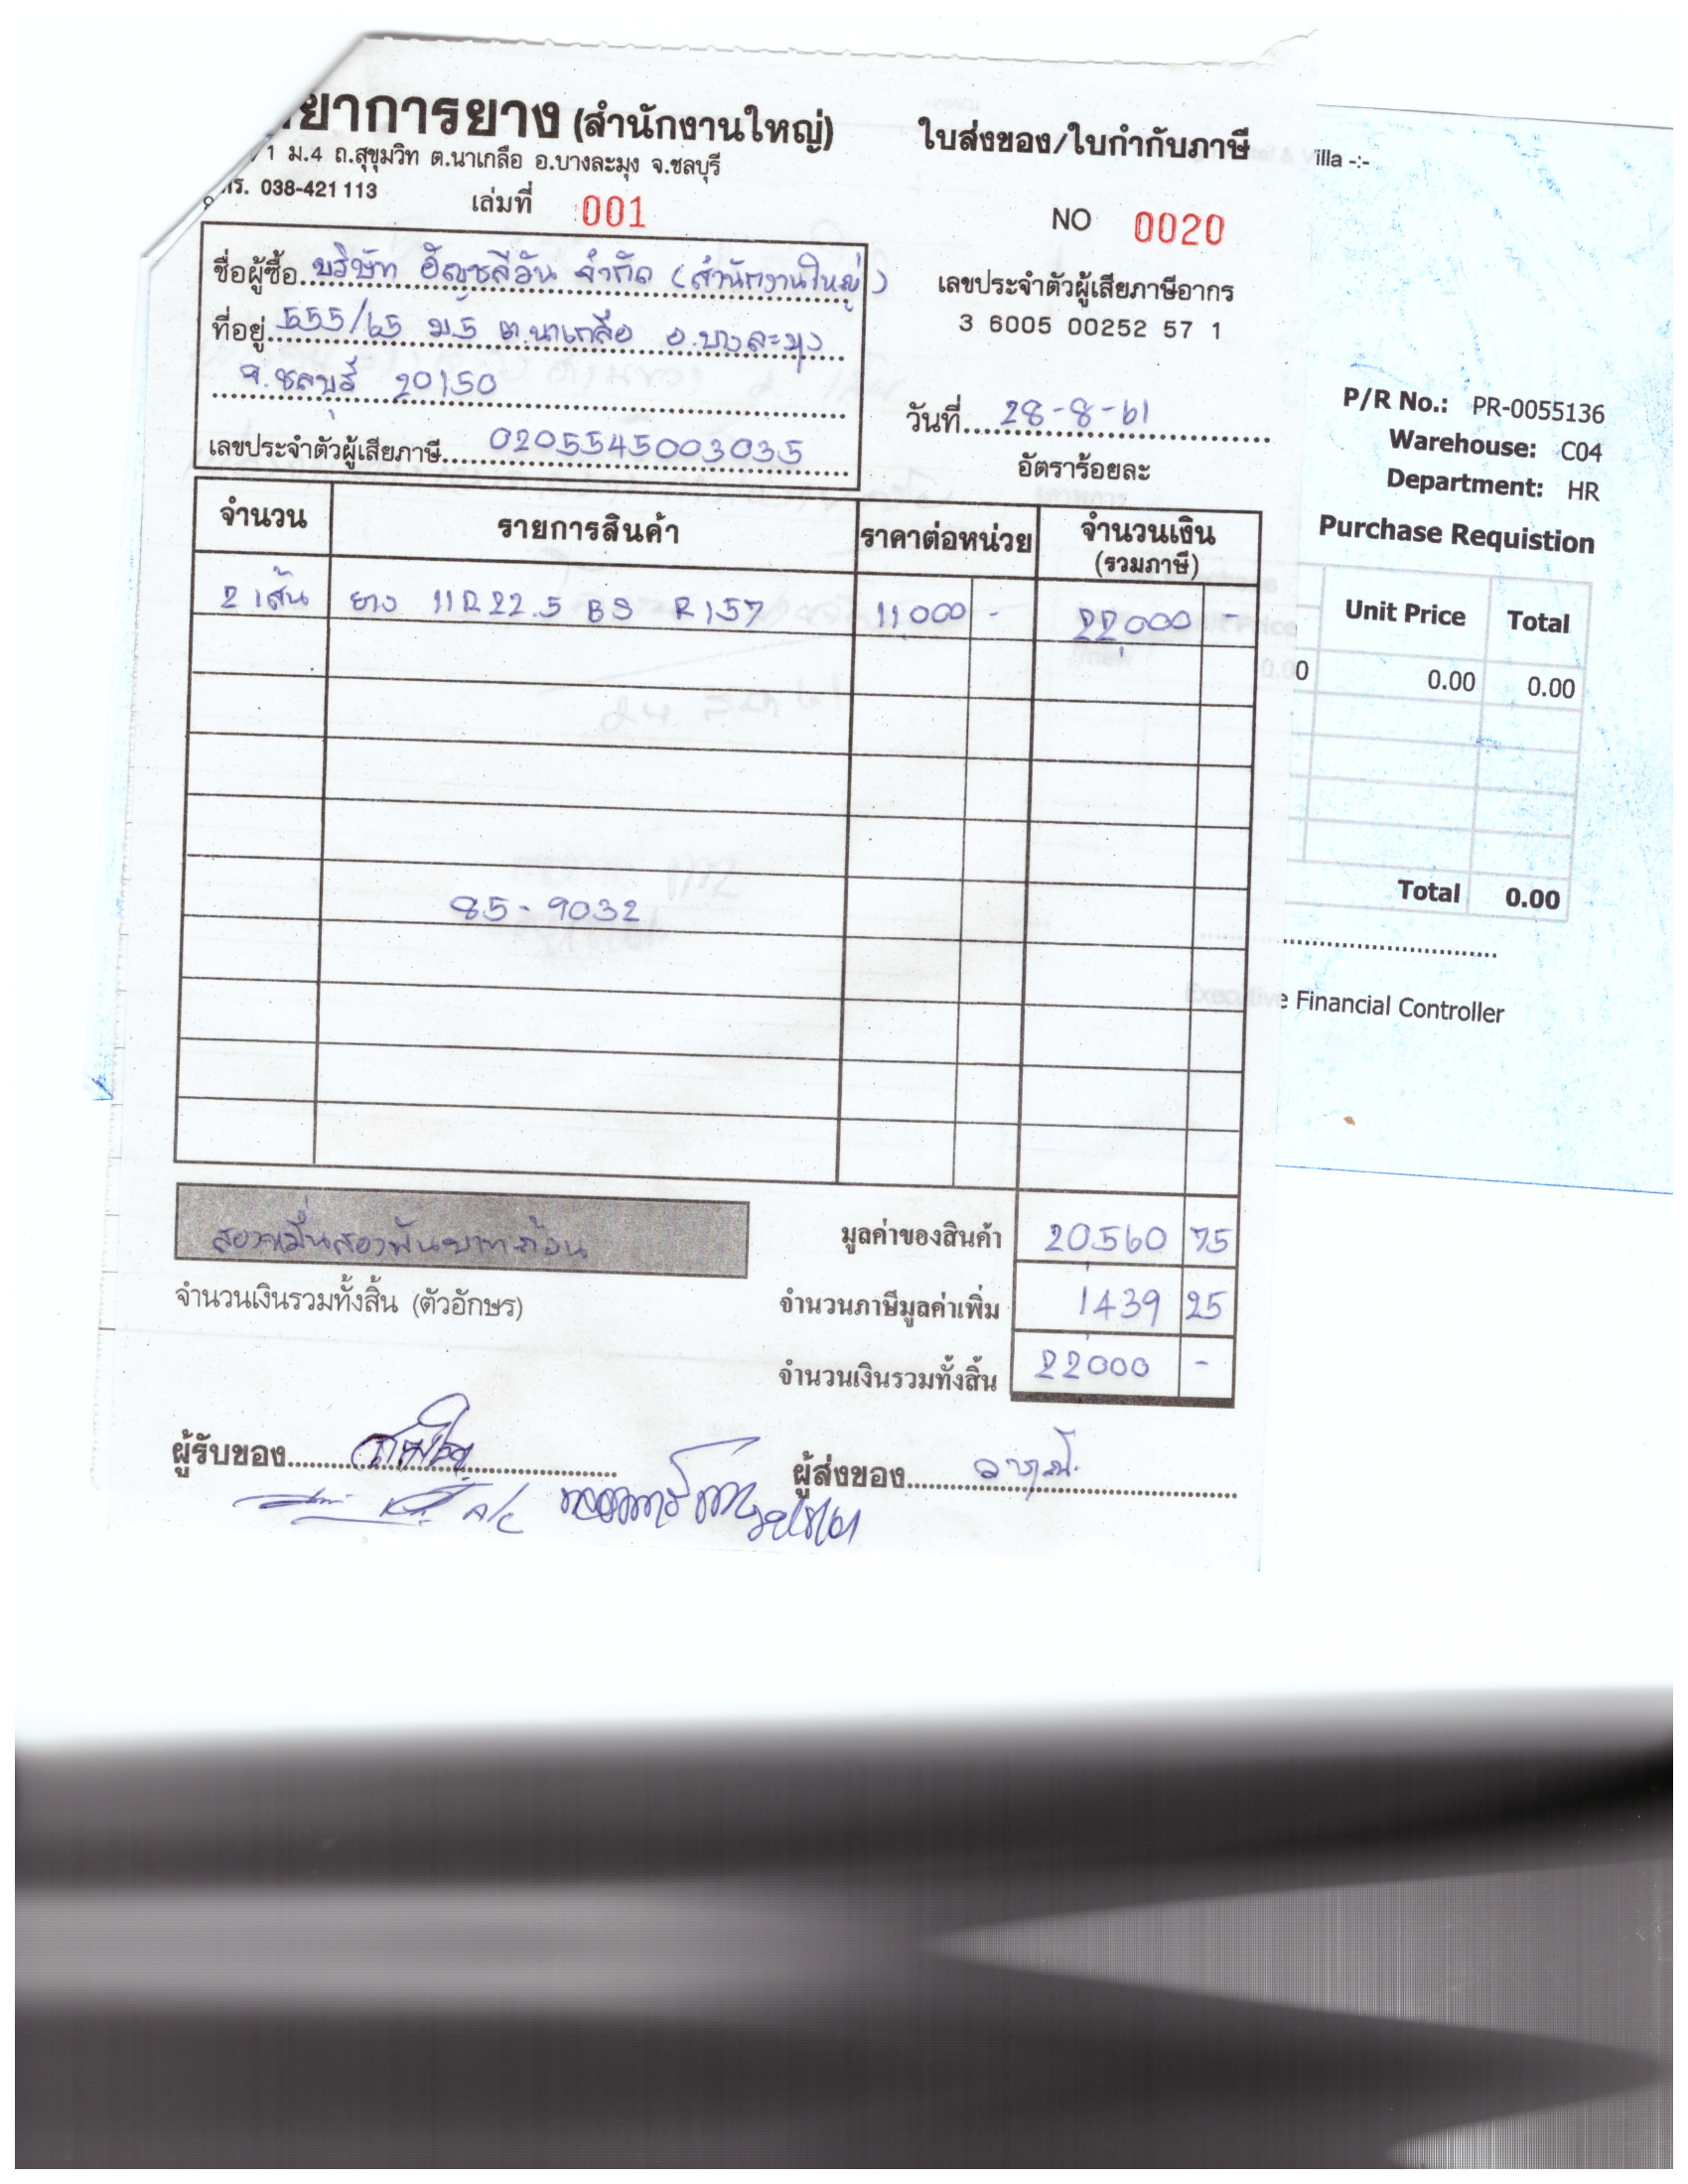 ยาการยาง (สำนักงานใหญ่)
ใบส่งของ/ใบกำกับภาษี
/1 ม.4 ถ.สุขุมวิท ต.นาเกลือ อ.บางละมุง จ.ชลบุรี
038-421113
เล่มที่ 001
NO 0020
ชื่อผู้ซื้อ บริษัท อัญชลีวัน จำกัด (สำนักงานใหญ่)
ที่อยู่ 555/65 ม.5 ต.นาเกลือ อ.บางละมุง
จ.ชลบุรี 20150
เลขประจำตัวผู้เสียภาษี 0205545003035
เลขประจำตัวผู้เสียภาษีอากร
3 6005 00252 57 1
วันที่ 28-8-61
อัตราร้อยละ
จำนวน รายการสินค้า ราคาต่อหน่วย จำนวนเงิน
(รวมภาษี)
2 เส้น ยาง 11R22.5 BS R157 11,000 - 22,000 -
85-9032
สองหมื่นสองพันบาทถ้วน
จำนวนเงินรวมทั้งสิ้น (ตัวอักษร)
มูลค่าของสินค้า 20,560 75
จำนวนภาษีมูลค่าเพิ่ม 1,439 25
จำนวนเงินรวมทั้งสิ้น 22,000 -
ผู้รับของ
ผู้ส่งของ
illa -:-
P/R No.: PR-0055136
Warehouse: C04
Department: HR
Purchase Requistion
Unit Price Total
0 0.00 0.00
Total 0.00
Executive Financial Controller